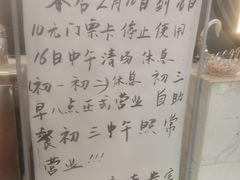 本店2月10日到16日
10元门票卡停止使用
16日中午清场休息
(初一初二)休息 初三
早八点正式营业 自助
餐初三中午照常
营业!!!